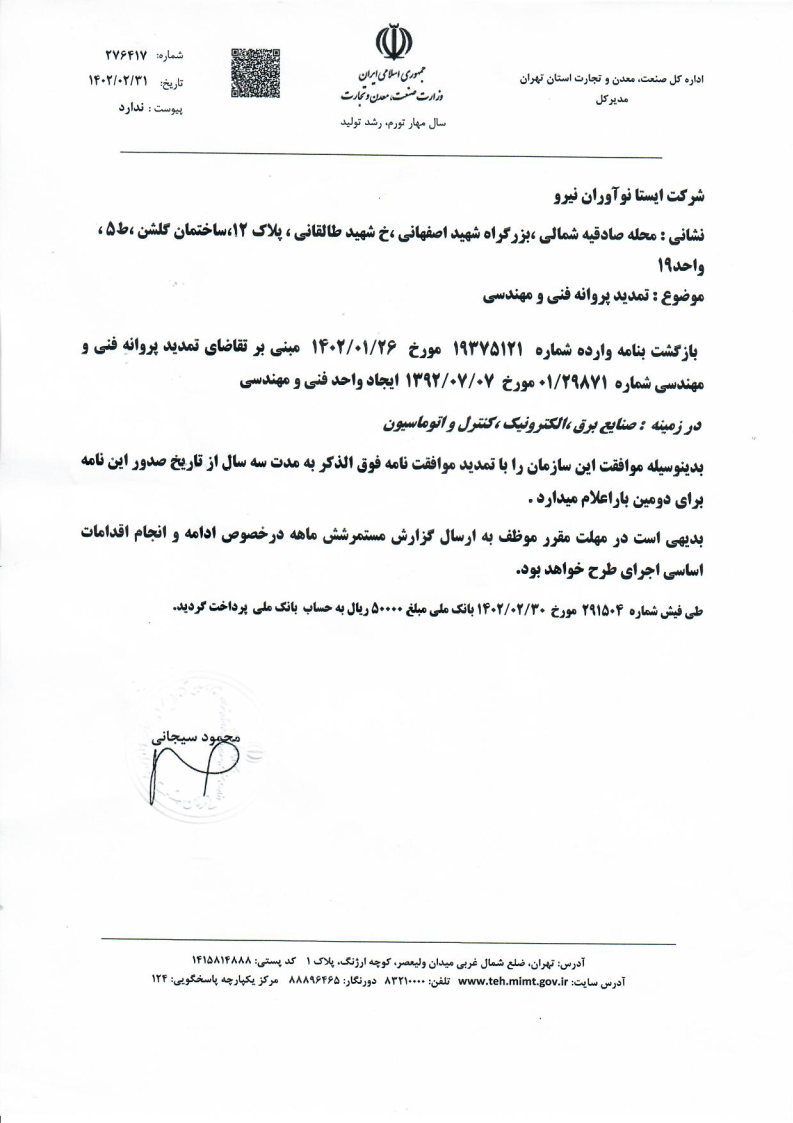 جمهوری اسلامی ایران
وزارت صنعت، معدن و تجارت
سال مهار تورم، رشد تولید
اداره کل صنعت، معدن و تجارت استان تهران
مدیرکل
شماره: ۲۷۶۴۱۷
تاریخ: ۱۴۰۲/۰۲/۳۱
پیوست : ندارد
شرکت ایستا نوآوران نیرو
نشانی : محله صادقیه شمالی ،بزرگراه شهید اصفهانی ،خ شهید طالقانی ، پلاک ۱۲،ساختمان گلشن ،ط۵ ،
واحد۱۹
موضوع : تمدید پروانه فنی و مهندسی
بازگشت بنامه وارده شماره ۱۹۳۷۵۱۲۱ مورخ ۱۴۰۲/۰۱/۲۶ مبنی بر تقاضای تمدید پروانه فنی و
مهندسی شماره ۰۱/۲۹۸۷۱ مورخ ۱۳۹۲/۰۷/۰۷ ایجاد واحد فنی و مهندسی
در زمینه : صنایع برق ،الکترونیک ،کنترل و اتوماسیون
بدینوسیله موافقت این سازمان را با تمدید موافقت نامه فوق الذکر به مدت سه سال از تاریخ صدور این نامه
برای دومین باراعلام میدارد .
بدیهی است در مهلت مقرر موظف به ارسال گزارش مستمرشش ماهه درخصوص ادامه و انجام اقدامات
اساسی اجرای طرح خواهد بود.
طی فیش شماره ۲۹۱۵۰۴ مورخ ۱۴۰۲/۰۲/۳۰ بانک ملی مبلغ ۵۰۰۰۰ ریال به حساب بانک ملی پرداخت گردید.
محمود سیجانی
آدرس: تهران، ضلع شمال غربی میدان ولیعصر، کوچه ارژنگ، پلاک ۱ کد پستی: ۱۴۱۵۸۱۴۸۸۸
آدرس سایت: www.teh.mimt.gov.ir تلفن: ۸۳۲۱۰۰۰۰ دورنگار: ۸۸۸۹۶۴۶۵ مرکز یکپارچه پاسخگویی: ۱۲۴